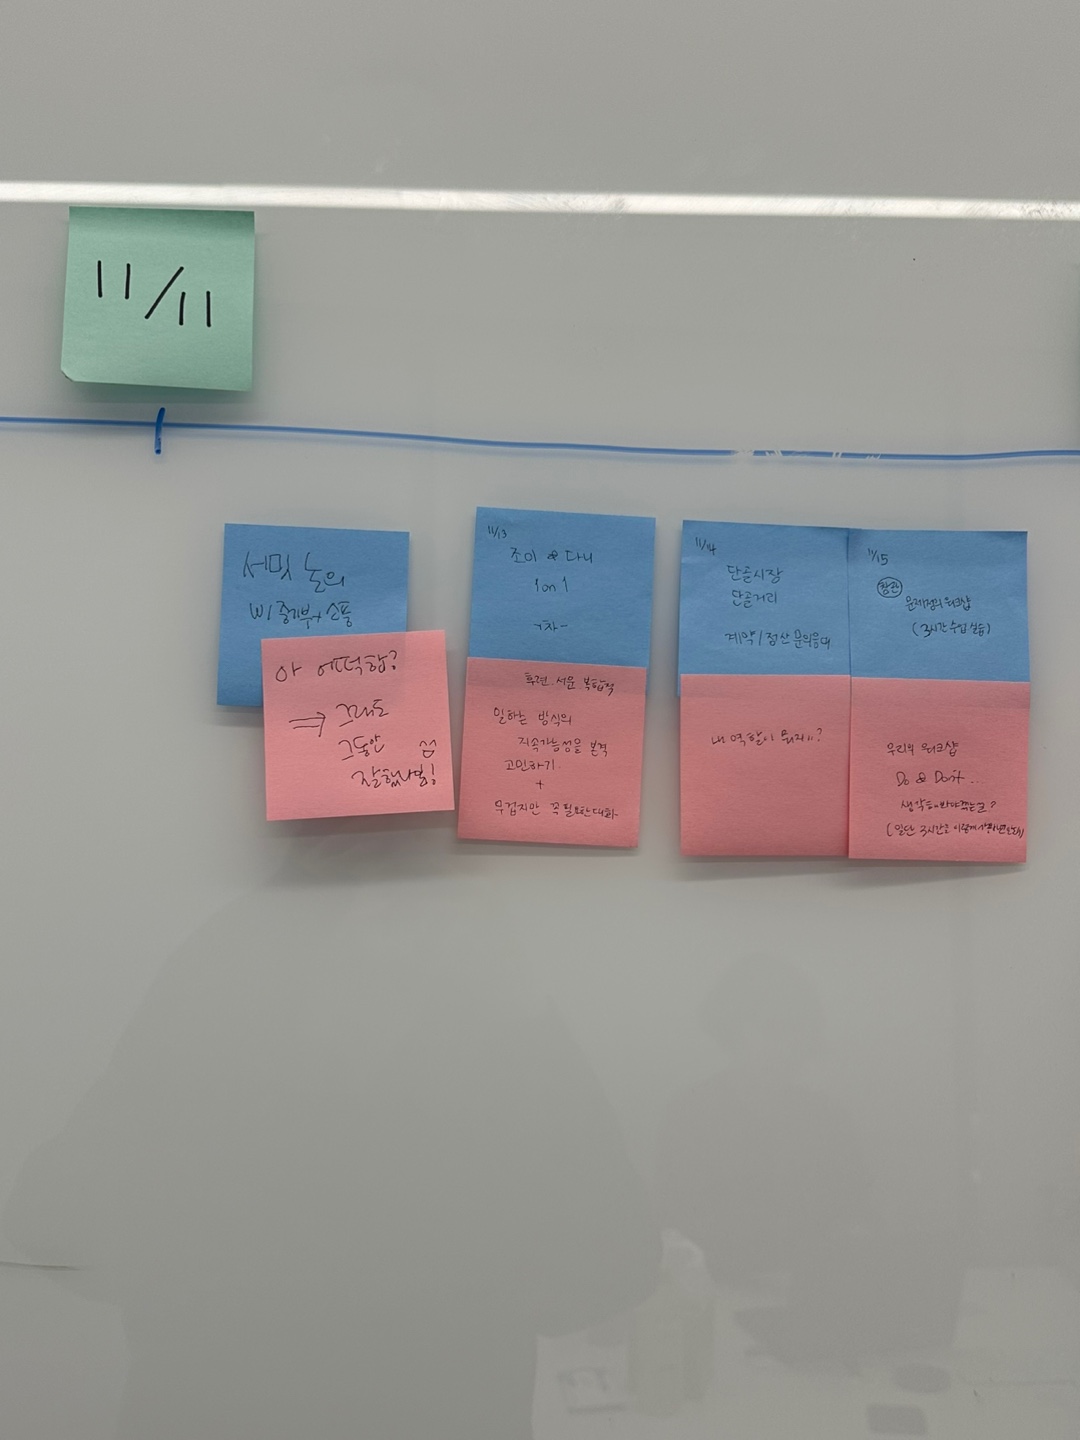 11/11
서밋 논의
W/ 중기부+소풍
아 어떡함?
⇒ 그래도
그동안
잘했나봄!
11/13
조이 & 다니
1 on 1
-차-
후련. 서운 복합적
일하는 방식의
지속가능성을 본격
고민하기.
+
무겁지만 꼭 필요한 대화-
11/14
단골시장
단골거리
계약/정산 문의응대
내 역할이 뭐지..?
11/15
참관
문제정의 워크샵
(3시간 수업 실습)
우리의 워크샵
Do & Don't ...
생각해봐야
(일단 3시간은